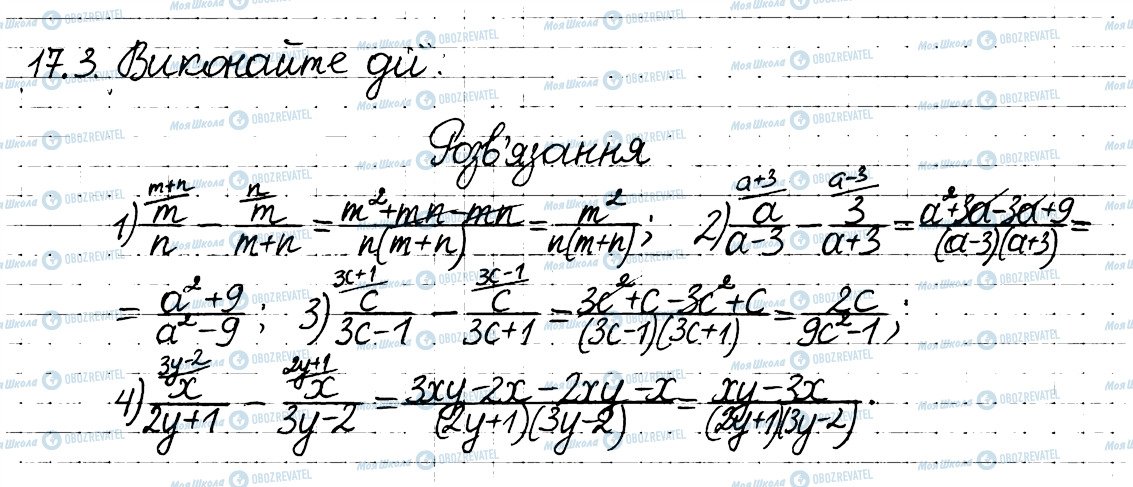 17.3. Виконайте дії:
Розв'язання
1) \frac{m}{n}^{m+n} - \frac{m}{m+n}^{n} = \frac{m^2+mn-mn}{n(m+n)} = \frac{m^2}{n(m+n)}; 2) \frac{a}{a-3}^{a+3} - \frac{3}{a+3}^{a-3} = \frac{a^2+3a-3a+9}{(a-3)(a+3)} =
= \frac{a^2+9}{a^2-9}; 3) \frac{c}{3c-1}^{3c+1} - \frac{c}{3c+1}^{3c-1} = \frac{3c^2+c-3c^2+c}{(3c-1)(3c+1)} = \frac{2c}{9c^2-1};
4) \frac{x}{2y+1}^{3y-2} - \frac{x}{3y-2}^{2y+1} = \frac{3xy-2x-2xy-x}{(2y+1)(3y-2)} = \frac{xy-3x}{(2y+1)(3y-2)}.
МояШкола OBOZREVATEL